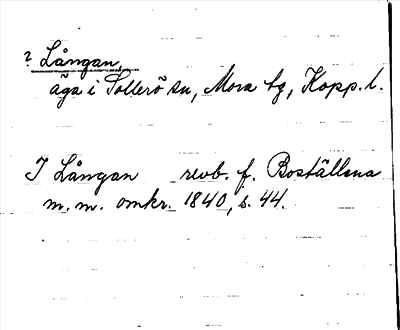 ? Långan,
äga i Sollerö sn, Mora tg, Kopp. l.
I Långan revb. f. Boställena
m. m. omkr. 1840, s. 44.